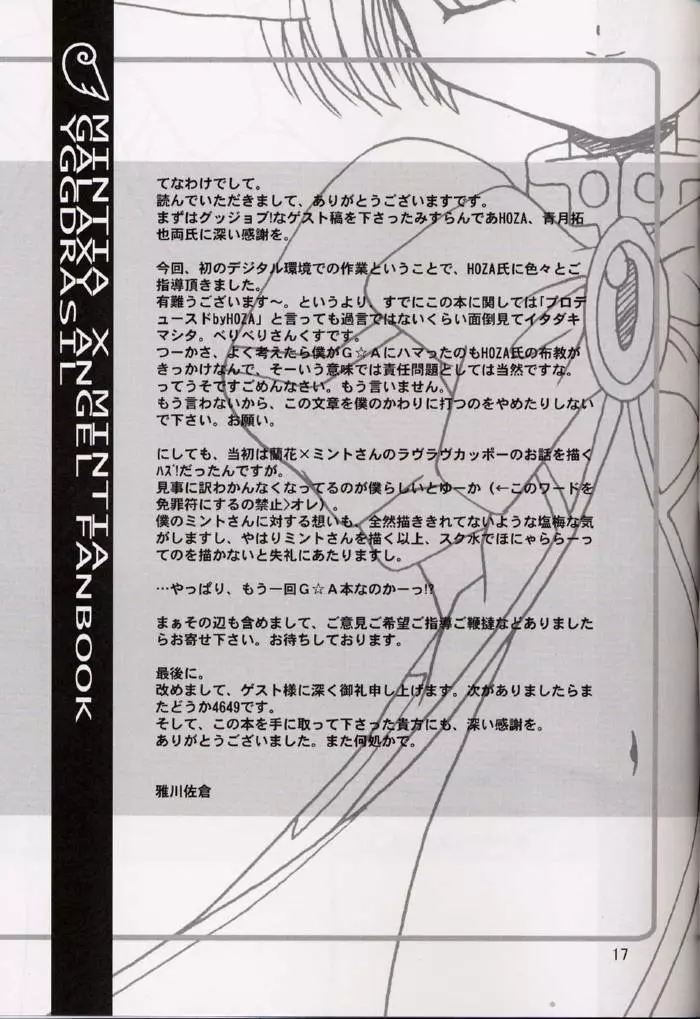 MINTIA X MINTIA
GALAXY ANGEL FANBOOK
YGGDRASIL
てなわけでして。
読んでいただきまして、ありがとうございますです。
まずはグッジョブ!なゲスト稿を下さったみすらんであHOZA、青月拓
也両氏に深い感謝を。
今回、初のデジタル環境での作業ということで、HOZA氏に色々とご
指導頂きました。
有難うございます〜。というより、すでにこの本に関しては「プロデ
ュースドbyHOZA」と言っても過言ではないくらい面倒見てイタダキ
マシタ。べりべりさんくすです。
つーかさ、よく考えたら僕がG☆AにハマったのもHOZA氏の布教が
きっかけなんで、そーいう意味では責任問題としては当然ですな。
ってうそですごめんなさい。もう言いません。
もう言わないから、この文章を僕のかわりに打つのをやめたりしない
で下さい。お願い。
にしても、当初は蘭花×ミントさんのラヴラヴカッポーのお話を描く
ハズ!だったんですが。
見事に訳わかんなくなってるのが僕らしいとゆーか（←このワードを
免罪符にするの禁止>オレ）。
僕のミントさんに対する想いも、全然描ききれてないような塩梅な気
がしますし、やはりミントさんを描く以上、スク水でほにゃららーっ
てのを描かないと失礼にあたりますし。
…やっぱり、もう一回G☆A本なのかーっ!?
まぁその辺も含めまして、ご意見ご希望ご指導ご鞭撻などありました
らお寄せ下さい。お待ちしております。
最後に。
改めまして、ゲスト様に深く御礼申し上げます。次がありましたらま
たどうか4649です。
そして、この本を手に取って下さった貴方にも、深い感謝を。
ありがとうございました。また何処かで。
雅川佐倉
17